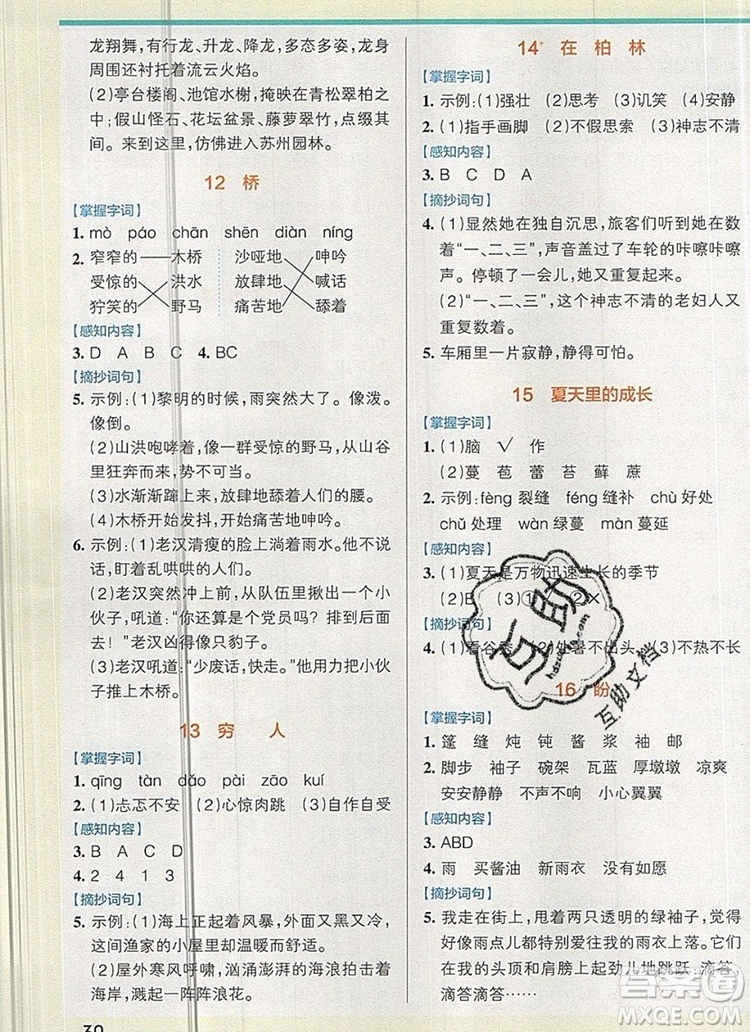 龙翔舞，有行龙、升龙、降龙，多态多姿，龙身
周围还衬托着流云火焰。
(2)亭台楼阁、池馆水榭，掩映在青松翠柏之
中；假山怪石、花坛盆景、藤萝翠竹，点缀其
间。来到这里，仿佛进入苏州园林。
12 桥
【掌握字词】
1. mò páo chān shēn diàn níng
2. 窄窄的 木桥 沙哑地 呻吟
受惊的 洪水 放肆地 喊话
狞笑的 野马 痛苦地 舔着
【感知内容】
3. D A B C 4. BC
【摘抄词句】
5. 示例：(1)黎明的时候，雨突然大了。像泼。
像倒。
(2)山洪咆哮着，像一群受惊的野马，从山谷
里狂奔而来，势不可当。
(3)水渐渐蹿上来，放肆地舔着人们的腰。
(4)木桥开始发抖，开始痛苦地呻吟。
6. 示例：(1)老汉清瘦的脸上淌着雨水。他不说
话，盯着乱哄哄的人们。
(2)老汉突然冲上前，从队伍里揪出一个小
伙子，吼道：“你还算是个党员吗？排到后面
去！”老汉凶得像只豹子。
(3)老汉吼道：“少废话，快走。”他用力把小伙
子推上木桥。
13 穷 人
【掌握字词】
1. qīng tàn dǎo pài zāo kuí
2. (1)忐忑不安 (2)心惊肉跳 (3)自作自受
【感知内容】
3. B A C D
4. 2 4 1 3
【摘抄词句】
5. 示例：(1)海上正起着风暴，外面又黑又冷，
这间渔家的小屋里却温暖而舒适。
(2)屋外寒风呼啸，汹涌澎湃的海浪拍击着
海岸，溅起一阵阵浪花。
30
14* 在 柏 林
【掌握字词】
1. 示例：(1)强壮 (2)思考 (3)讥笑 (4)安静
2. (1)指手画脚 (2)不假思索 (3)神志不清
【感知内容】
3. B C D A
【摘抄词句】
4. (1)显然她在独自沉思，旅客们听到她在数
着“一、二、三”，声音盖过了车轮的咔嚓咔嚓
声。停顿了一会儿，她又重复起来。
(2)“一、二、三”，这个神志不清的老妇人又
重复数着。
5. 车厢里一片寂静，静得可怕。
15 夏天里的成长
【掌握字词】
1. (1)脑 √ 作
(2)蔓 苞 蕾 苔 藓 蔗
2. 示例：fèng 裂缝 féng 缝补 chù 好处
chǔ 处理 wàn 绿蔓 màn 蔓延
【感知内容】
3. (1)夏天是万物迅速生长的季节
(2)B (3)① ②×
【摘抄词句】
4. (1)看谷秀 (2)处暑不出头 (3)不热不长
16 盼
【掌握字词】
1. 篷 缝 炖 钝 酱 浆 袖 邮
2. 脚步 袖子 碗架 瓦蓝 厚墩墩 凉爽
安安静静 不声不响 小心翼翼
【感知内容】
3. ABD
4. 雨 买酱油 新雨衣 没有如愿
【摘抄词句】
5. 我走在街上，甩着两只透明的绿袖子，觉得
好像雨点儿都特别爱往我的雨衣上落。它们
在我的头顶和肩膀上起劲儿地跳跃：滴答
滴答滴答……
互助
互助文档
答案圈
MXQE.COM